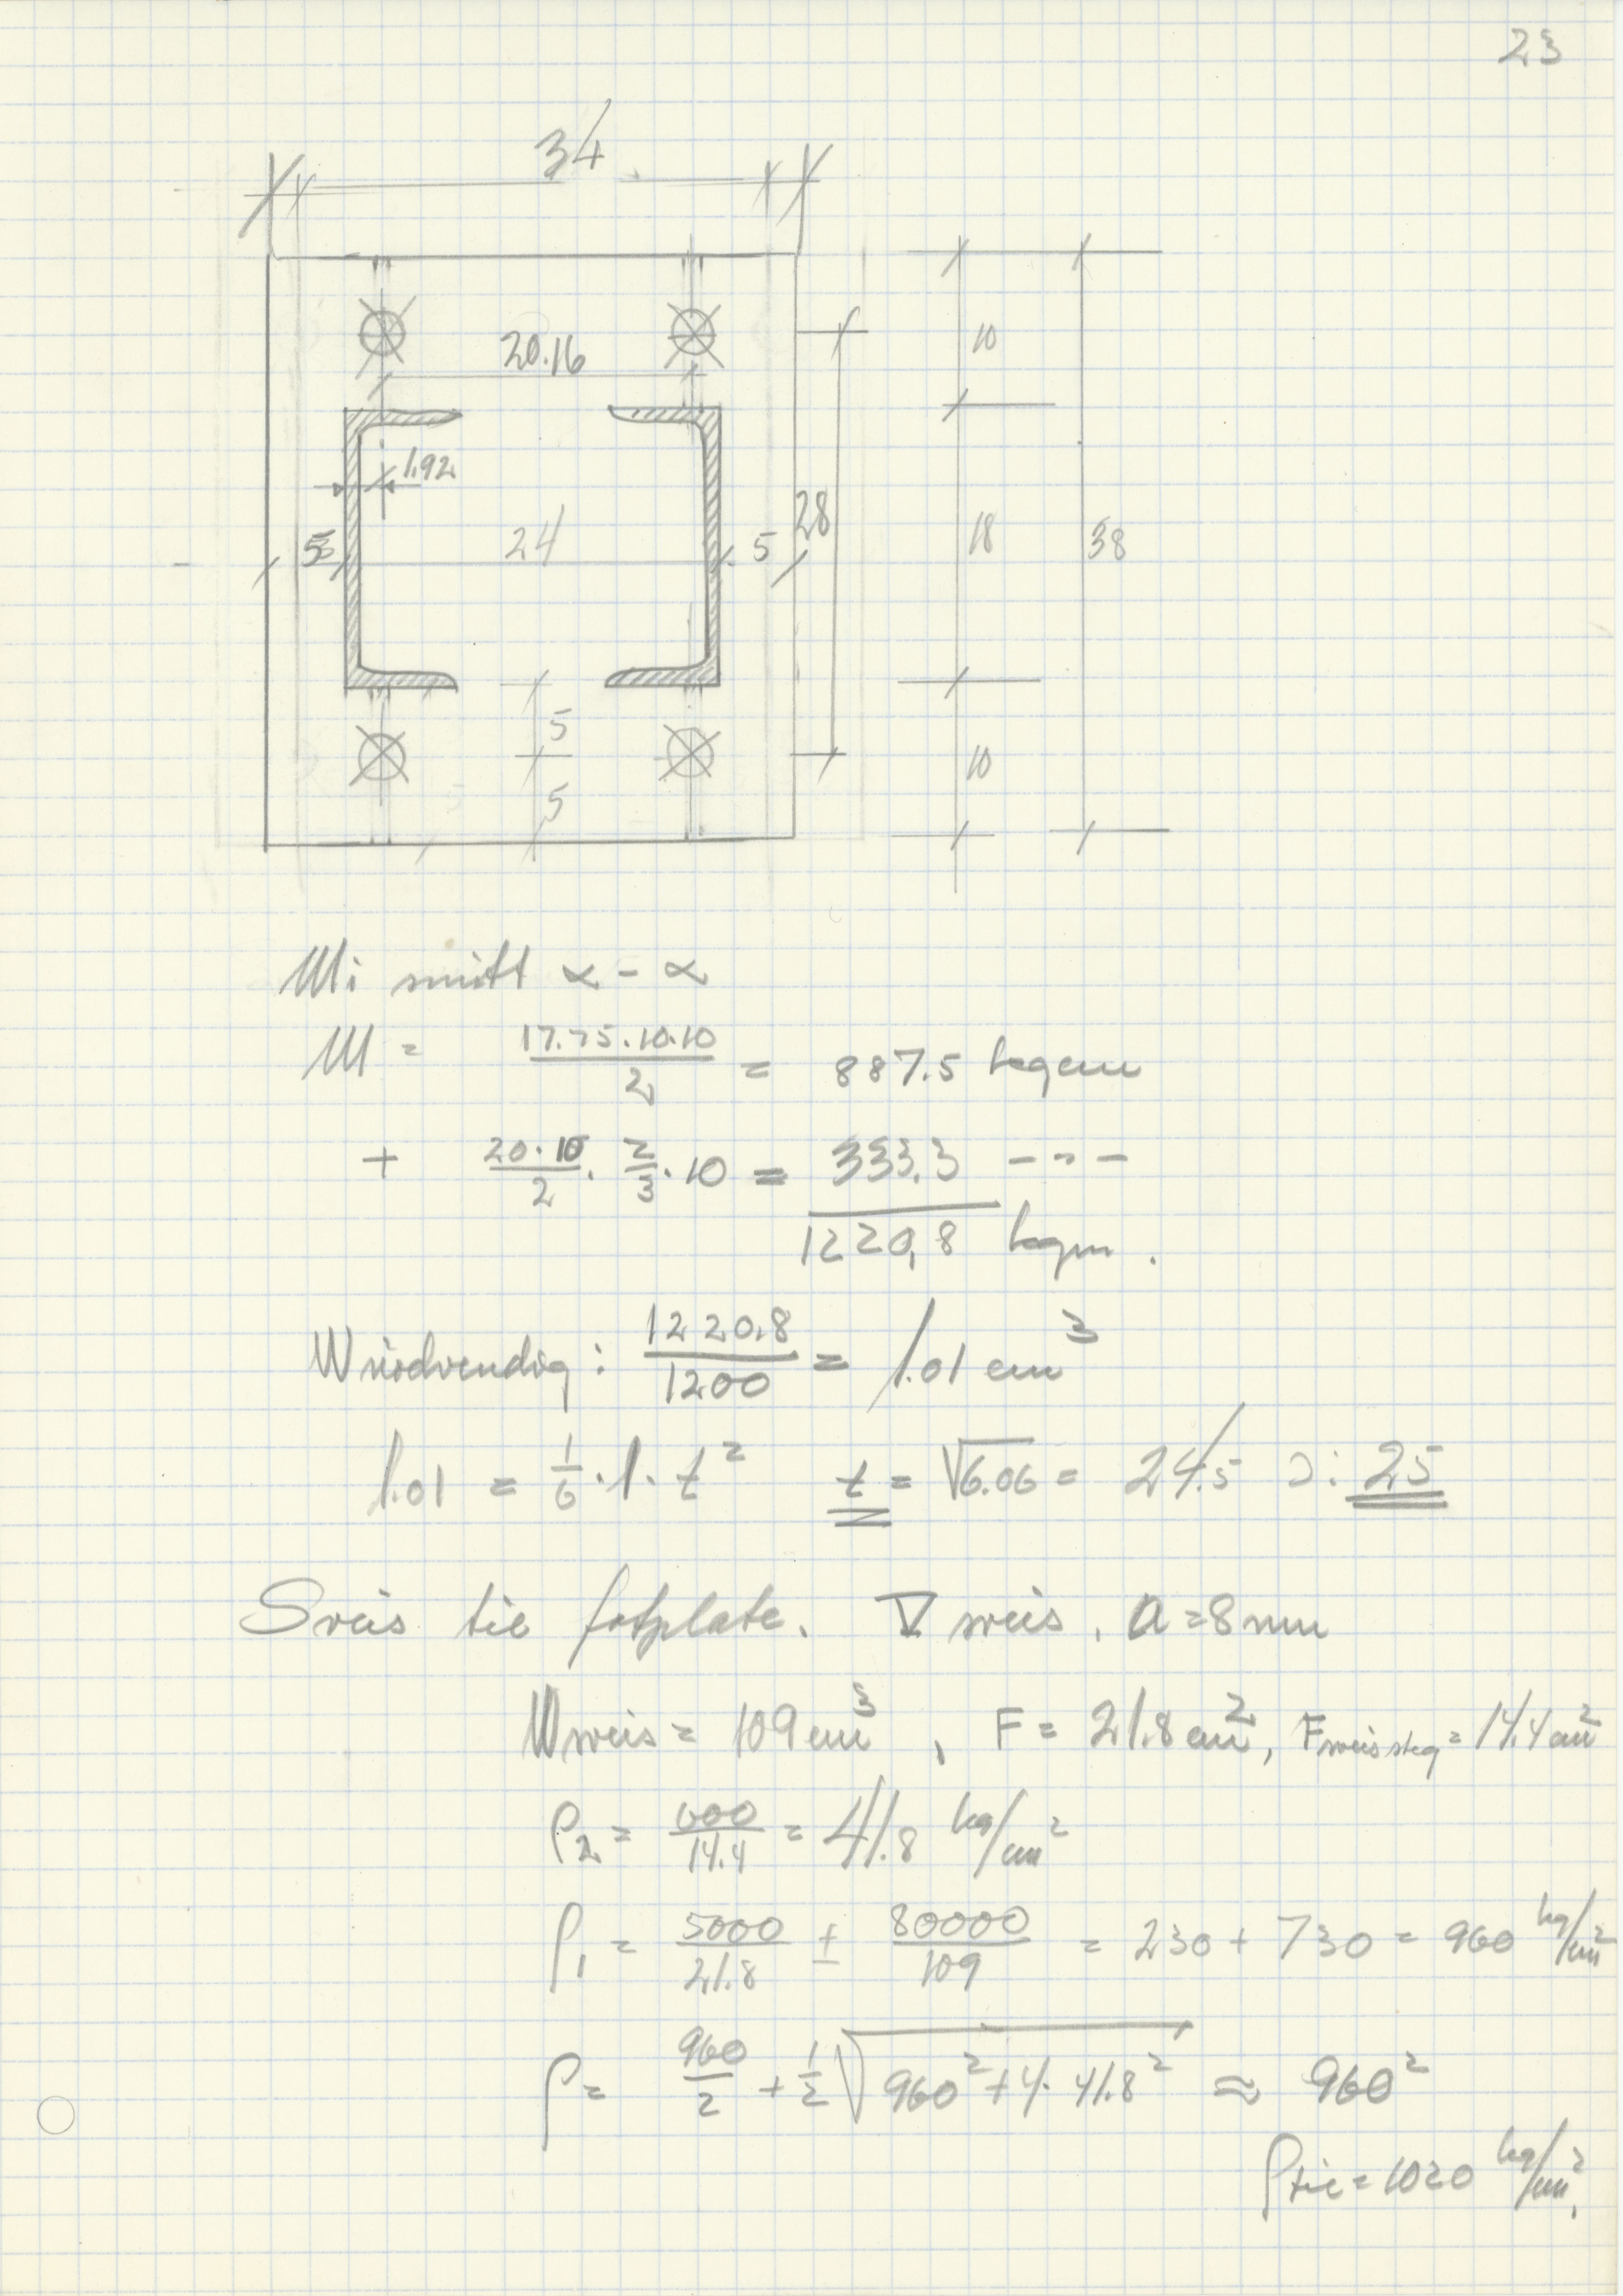 23
34
20.16
10
1.92
28
5
24
5
18
38
5
10
5
M i snitt α - α
M = 17.75·10·10 / 2 = 887.5 kgcm
+ 20·10 / 2 · 2/3 · 10 = 333.3 -"-
1220,8 kgcm.
W nødvendig: 1220.8 / 1200 = 1.01 cm³
1.01 = 1/6 · 1 · t² t = √6.06 = 24.5 ɔ: 25
Sveis til fotplate. V sveis, a = 8 mm
W sveis = 109 cm³, F = 21.8 cm², F sveis steg = 14.4 cm²
ρ₂ = 600 / 14.4 = 41.8 kg/cm²
ρ₁ = 5000 / 21.8 ± 80000 / 109 = 230 + 730 = 960 kg/cm²
ρ = 960 / 2 + 1/2 √960² + 4 · 41.8² ≈ 960²
ρ till = 1020 kg/cm².